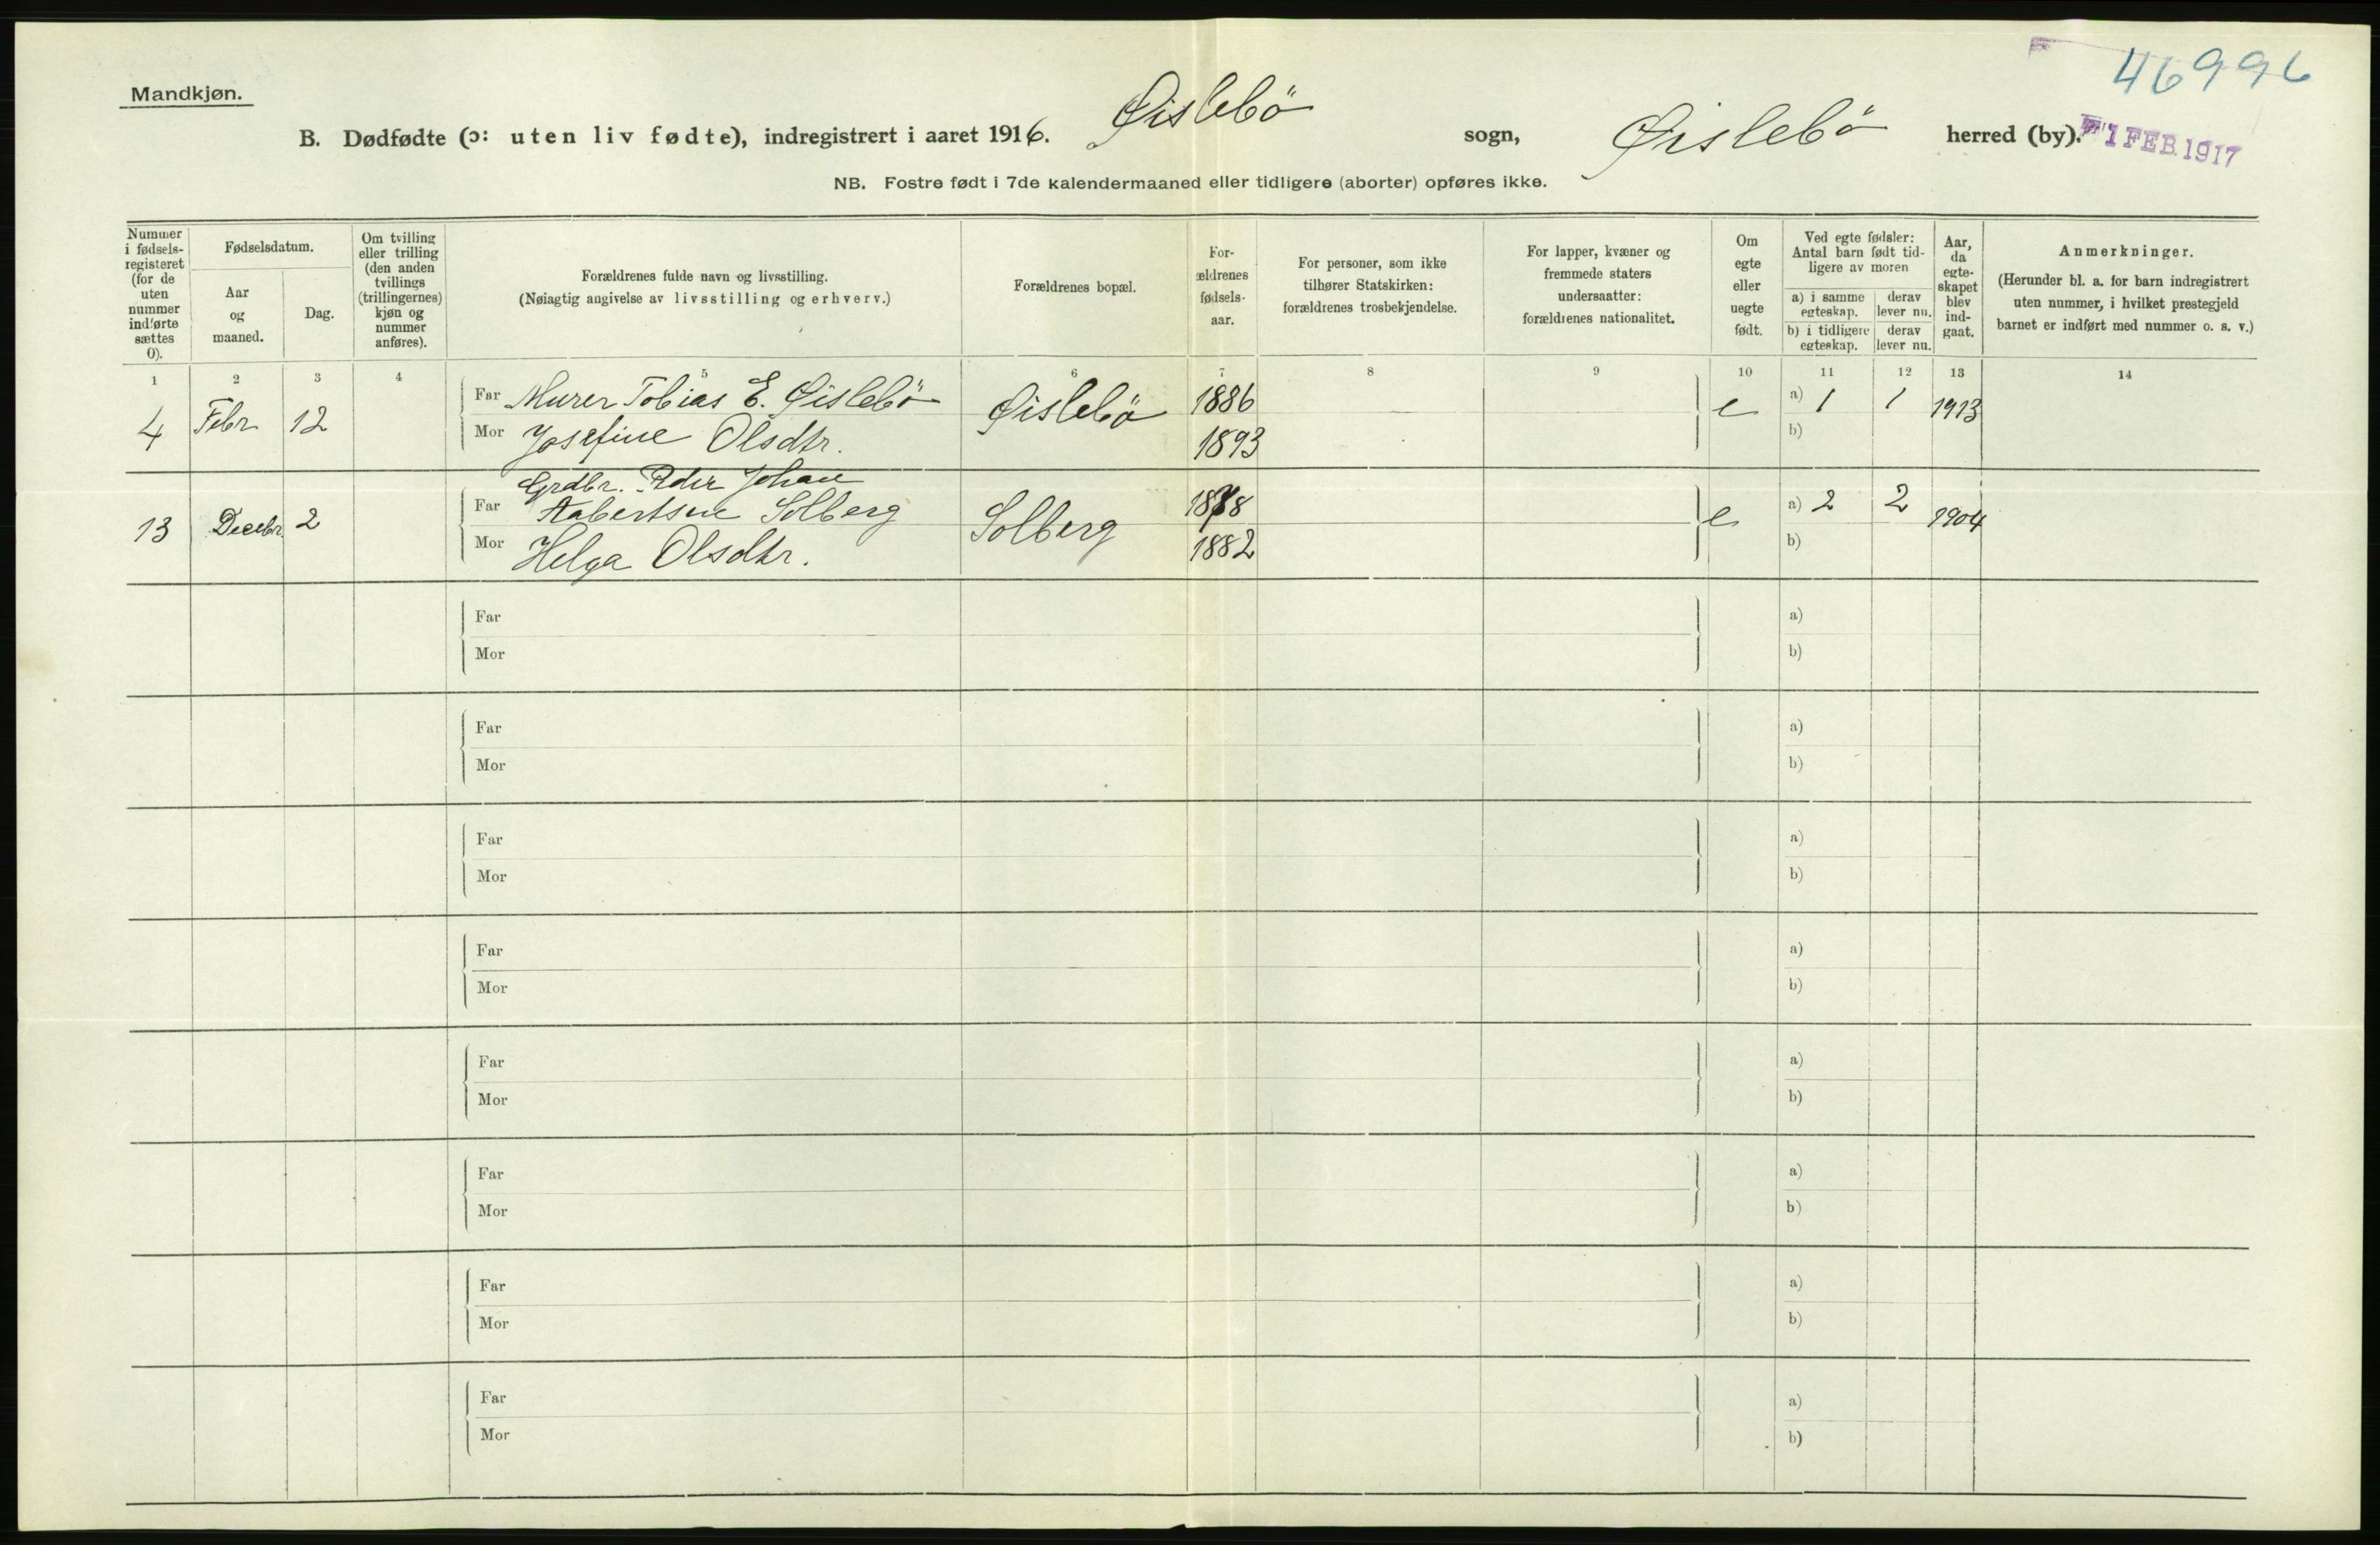 46996
Mandkjøn.
B. Dødfødte (ɔ: uten liv fødte), indregistrert i aaret 1916. Øislebö sogn, Øislebö herred (by).
1 FEB. 1917
NB. Fostre født i 7de kalendermaaned eller tidligere (aborter) opføres ikke.
Nummer
i fødsels-
registeret
(for de
uten
nummer
indførte
sættes
0).
Fødselsdatum.
Aar
og
maaned.
Dag.
Om tvilling
eller trilling
(den anden
tvillings
(trillingernes)
kjøn og
nummer
anføres).
Forældrenes fulde navn og livsstilling.
(Nøiagtig angivelse av livsstilling og erhverv.)
Forældrenes bopæl.
For-
ældrenes
fødsels-
aar.
For personer, som ikke
tilhører Statskirken:
forældrenes trosbekjendelse.
For lapper, kvæner og
fremmede staters
undersaatter:
forældrenes nationalitet.
Om
egte
eller
uegte
født.
Ved egte fødsler:
Antal barn født tid-
ligere av moren
a) i samme
egteskap.
derav
lever nu.
b) i tidligere
egteskap.
derav
lever nu.
Aar,
da
egte-
skapet
blev
ind-
gaat.
Anmerkninger.
(Herunder bl. a. for barn indregistrert
uten nummer, i hvilket prestegjeld
barnet er indført med nummer o. s. v.)
1 2 3 4 5 6 7 8 9 10 11 12 13 14
4 Febr 12 Far Murer Tobias E. Øislebö Øislebö 1886 e a) 1 1 1913
Mor Josefine Olsdtr. 1893 b)
Grdbr. Peder Johan
13 Decebr. 2 Far Aabertsen Solberg Solberg 1878 e a) 2 2 1904
Mor Helga Olsdtr. 1882 b)
Far a)
Mor b)
Far a)
Mor b)
Far a)
Mor b)
Far a)
Mor b)
Far a)
Mor b)
Far a)
Mor b)
Far a)
Mor b)
Far a)
Mor b)